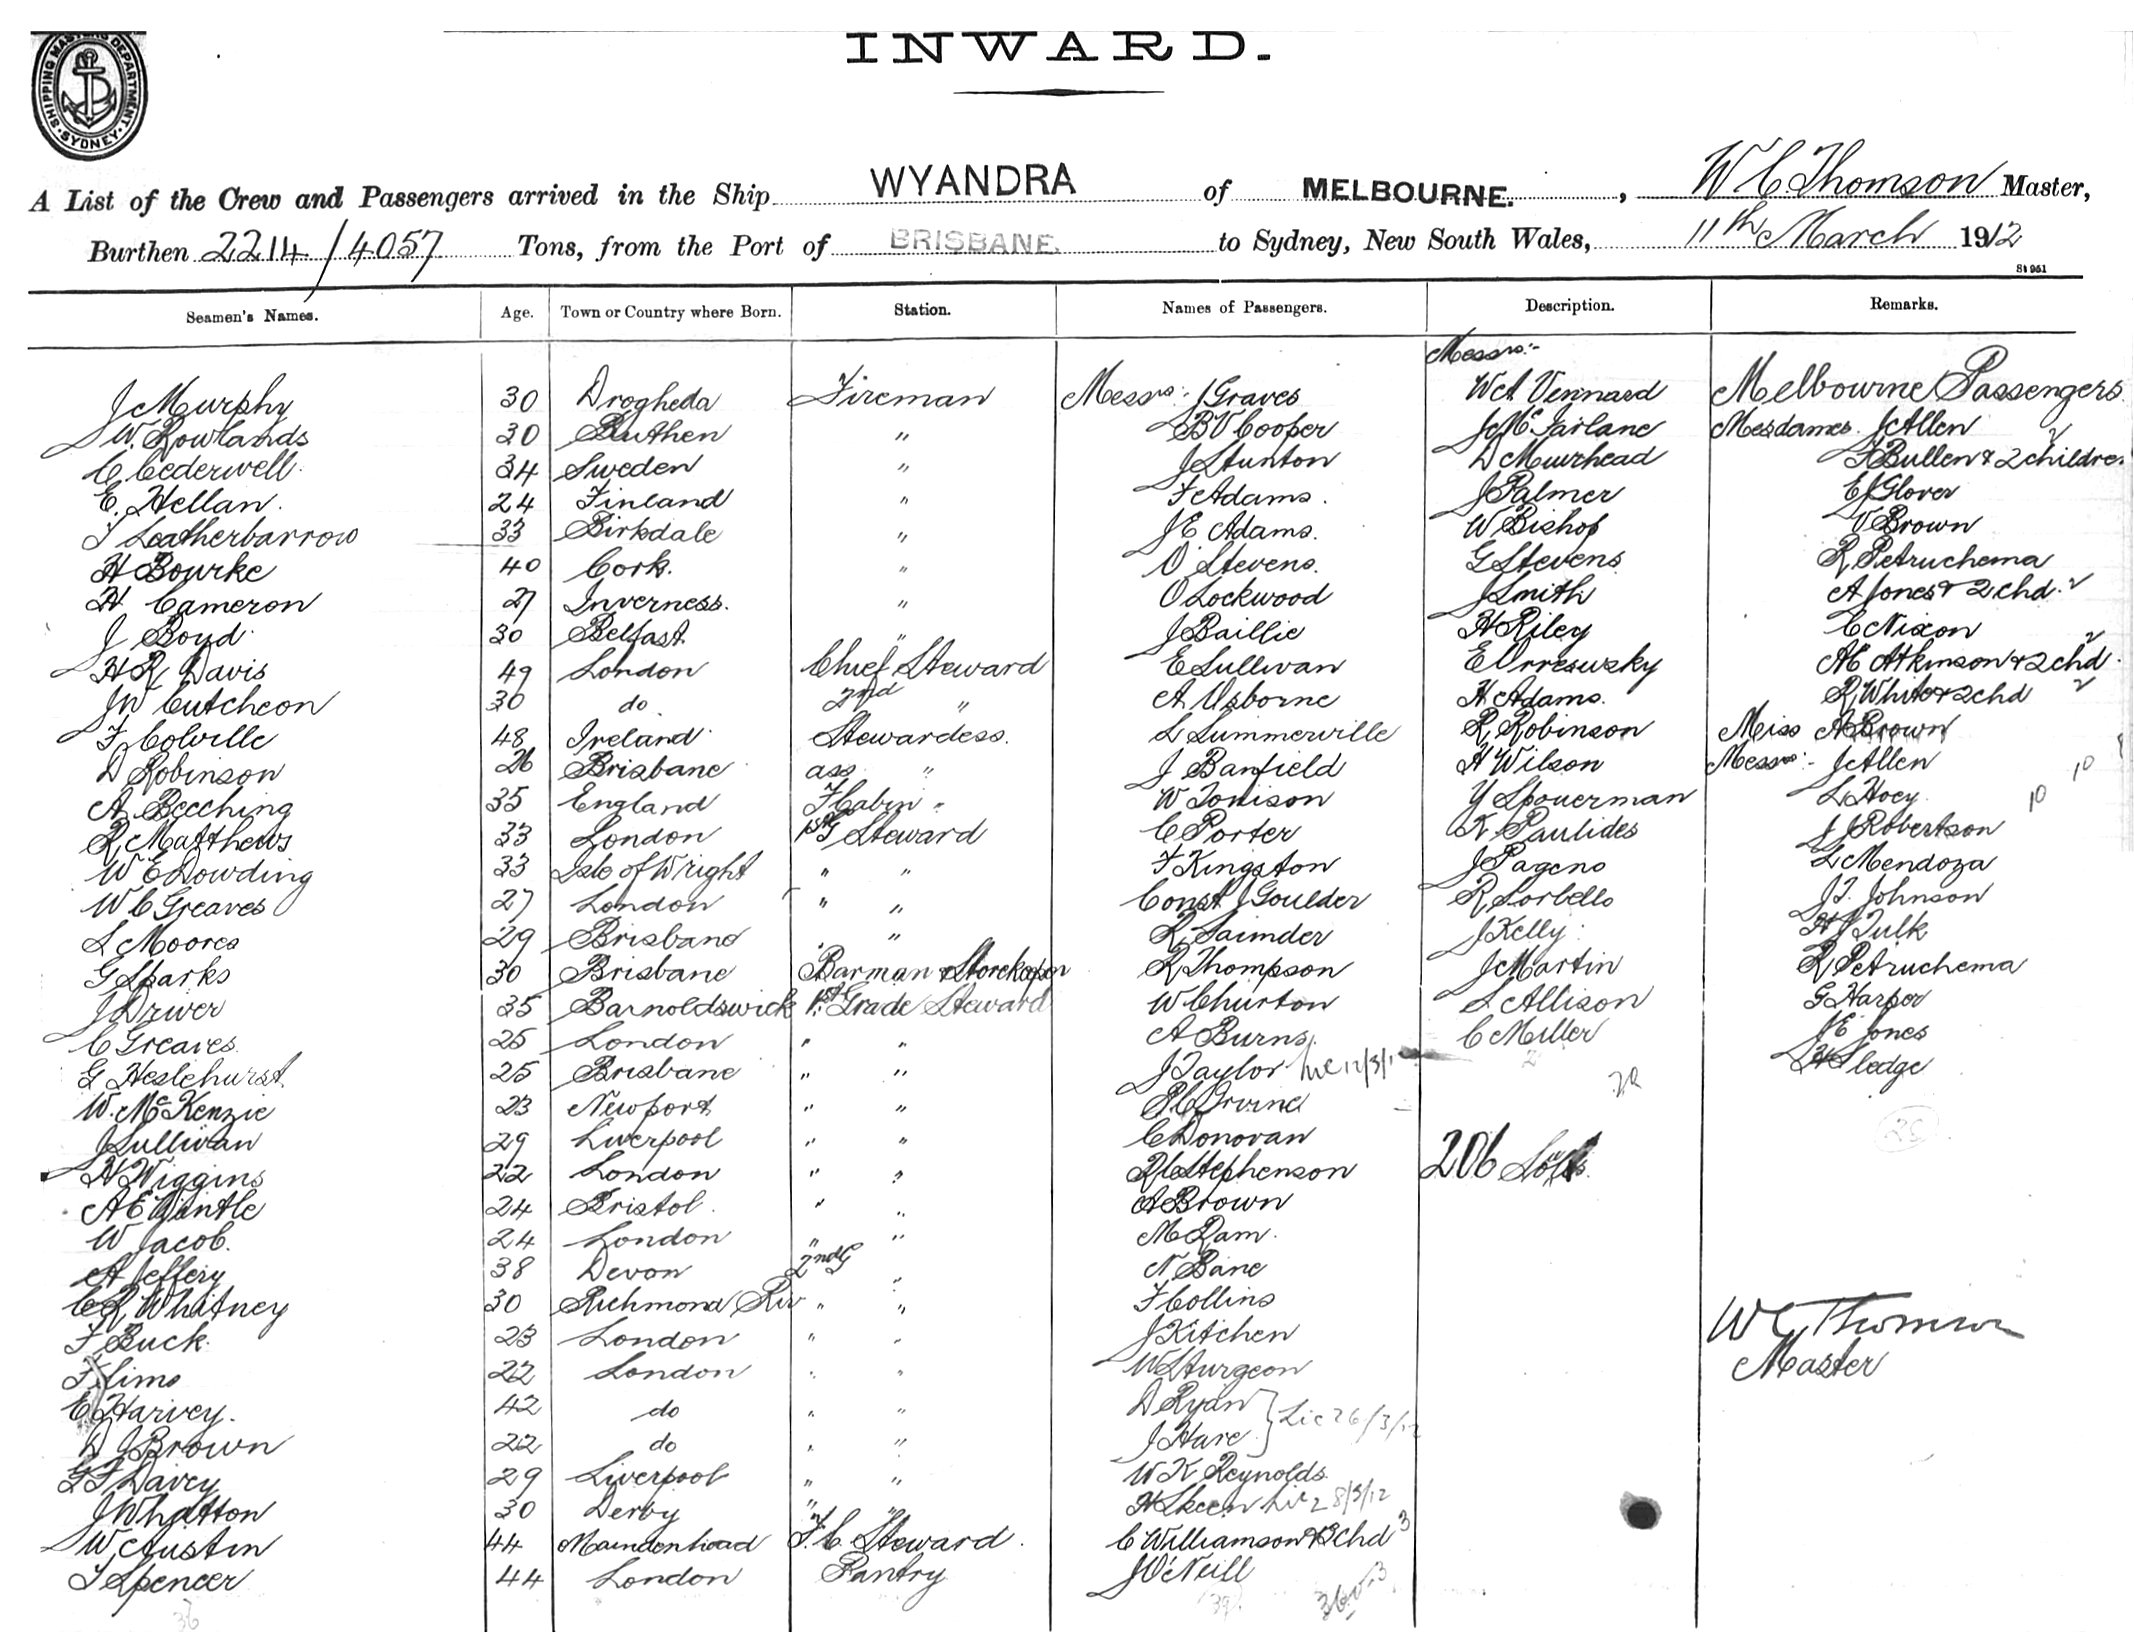 INWARD.
SHIPPING MASTERS DEPARTMENT SYDNEY
A List of the Crew and Passengers arrived in the Ship WYANDRA of MELBOURNE., W C Thomson Master,
Burthen 2214/4057 Tons, from the Port of BRISBANE. to Sydney, New South Wales, 11th March 1912
St 951
Seamen's Names. Age. Town or Country where Born. Station. Names of Passengers. Description. Remarks.
Messrs:-
J Murphy 30 Drogheda Fireman Messrs:- J Graves W A Vennard Melbourne Passengers
W. Rowlands 30 Ruthen " B V Cooper J McFarlane Mesdames J Allen
C Cederwell. 34 Sweden " J Stunton D Muirhead F Bullen & 2 children 2
E. Hellan. 24 Finland " F Adams. J Palmer E J Glover
T Leatherbarrow 33 Birkdale " J E Adams. W Bishop V Brown
H Bourke 40 Cork. " O Stevens. G Stevens R Petruchema
H Cameron 27 Inverness. " O Lockwood J Smith A Jones & 2 chd. 2
J Boyd 30 Belfast " J Baillie H Riley C Nixon
H R Davis 49 London Chief Steward E Sullivan E Orresuzky A E Atkinson & 2 chd. 2
J W Cutcheon 30 do 2nd " A Usborne H Adams. R White & 2 chd 2
F Colville 48 Ireland Stewardess. L Summerville R Robinson Miss A Brown
D Robinson 26 Brisbane ass " J Banfield H Wilson Messrs:- J Allen 10
A Beeching 35 England F Cabin " W Tonison Y Spouerman L Hoey 10
R Matthews 33 London 1st G Steward C Porter K Paulides J J Robertson
W E Dowding 33 Isle of Wright " " F Kingston J Pageno L Mendoza
W C Greaves 27 London " " Const J Goulder R Sorbello J T. Johnson
L Moores 29 Brisbane " " R Saimder J Kelly H J Tulk
G Sparks 30 Brisbane Barman & Storekeeper R Thompson J Martin R Petruchema
J Driver 35 Barnoldswick 1st Grade Steward W Churton L Allison G Harper
C Greaves 25 London " " A Burns C Miller J E Jones
G Heslehurst 25 Brisbane " " J Taylor Lic 12/3/12 H Sledge
W. McKenzie 23 Newport " " P C Irvine
J Sullivan 29 Liverpool " " C Donovan 206
H Wiggins 22 London " " R C Stephenson
A E Gentle 24 Bristol. " " A Brown
W Jacob. 24 London " " M Ram.
A Jeffery 38 Devon 2nd G " N Bane
C R Whitney 30 Richmond Riv " " F Collins
F Buck 23 London " " J Kitchen W C Thomson
F Sims 22 London " " W Sturgeon Master
E Harvey. 42 do " " D Ryan
D J Brown 22 do " " J Hare } Lic 26/3/12
G F Davey 29 Liverpool " " W K Reynolds.
J Whatton 30 Derby " " H Skeen Lic 28/3/12
W Austin 44 Maindenhead F. C Steward. C Williamson & 3 chd 3
T Spencer 44 London Pantry J O'Neill
36 39